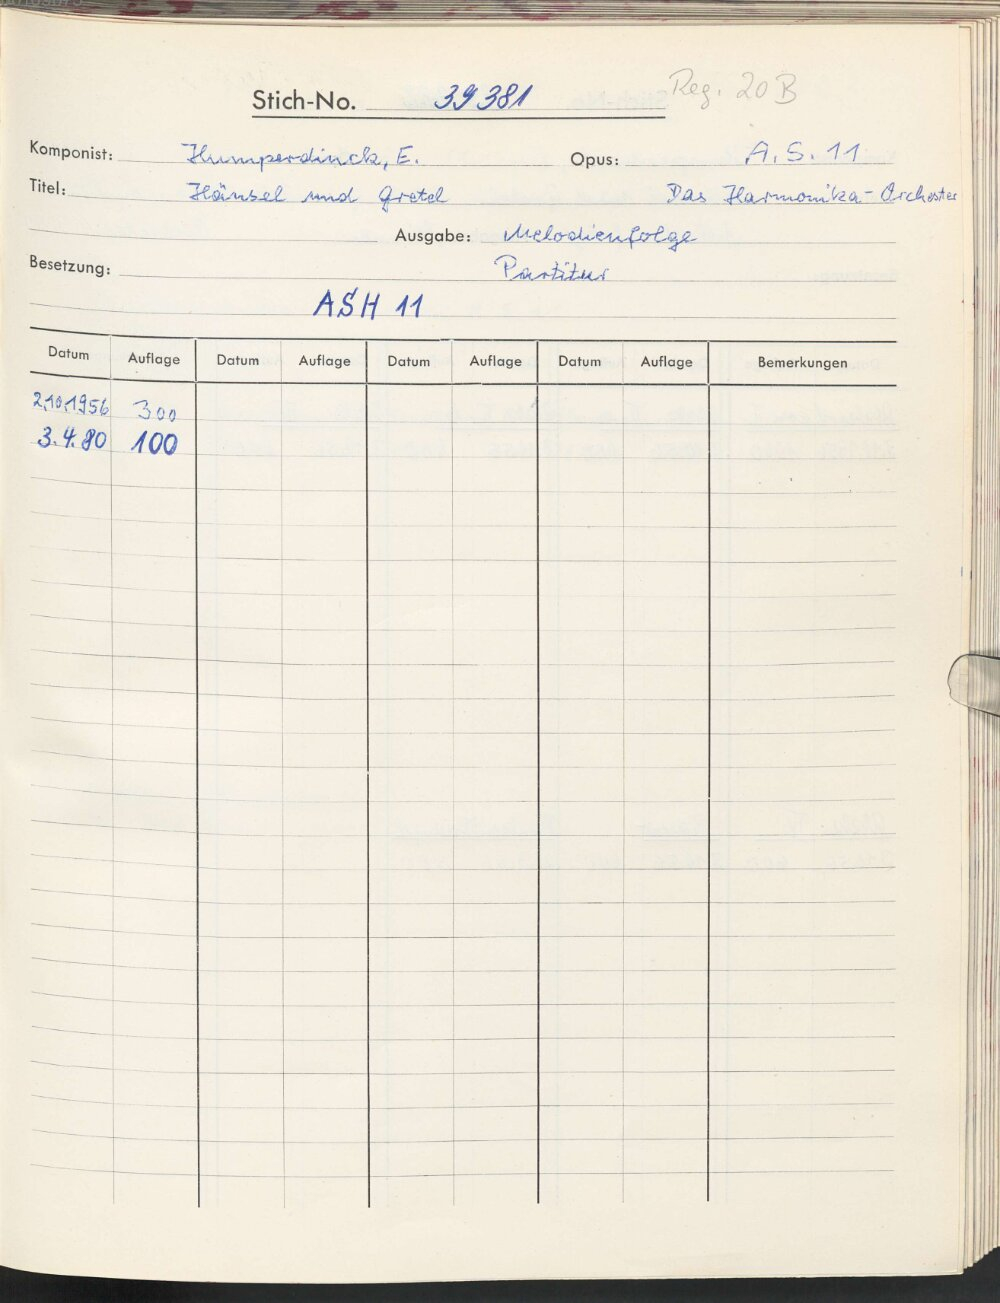 Stich-No. 39381 Reg. 20B
Komponist: Humperdinck, E. Opus: A.S. 11
Titel: Hänsel und Gretel Das Harmonika-Orchester
Ausgabe: Melodienfolge
Besetzung: Partitur
ASH 11
Datum Auflage Datum Auflage Datum Auflage Datum Auflage Bemerkungen
2.10.1956 300
3.4.80 100